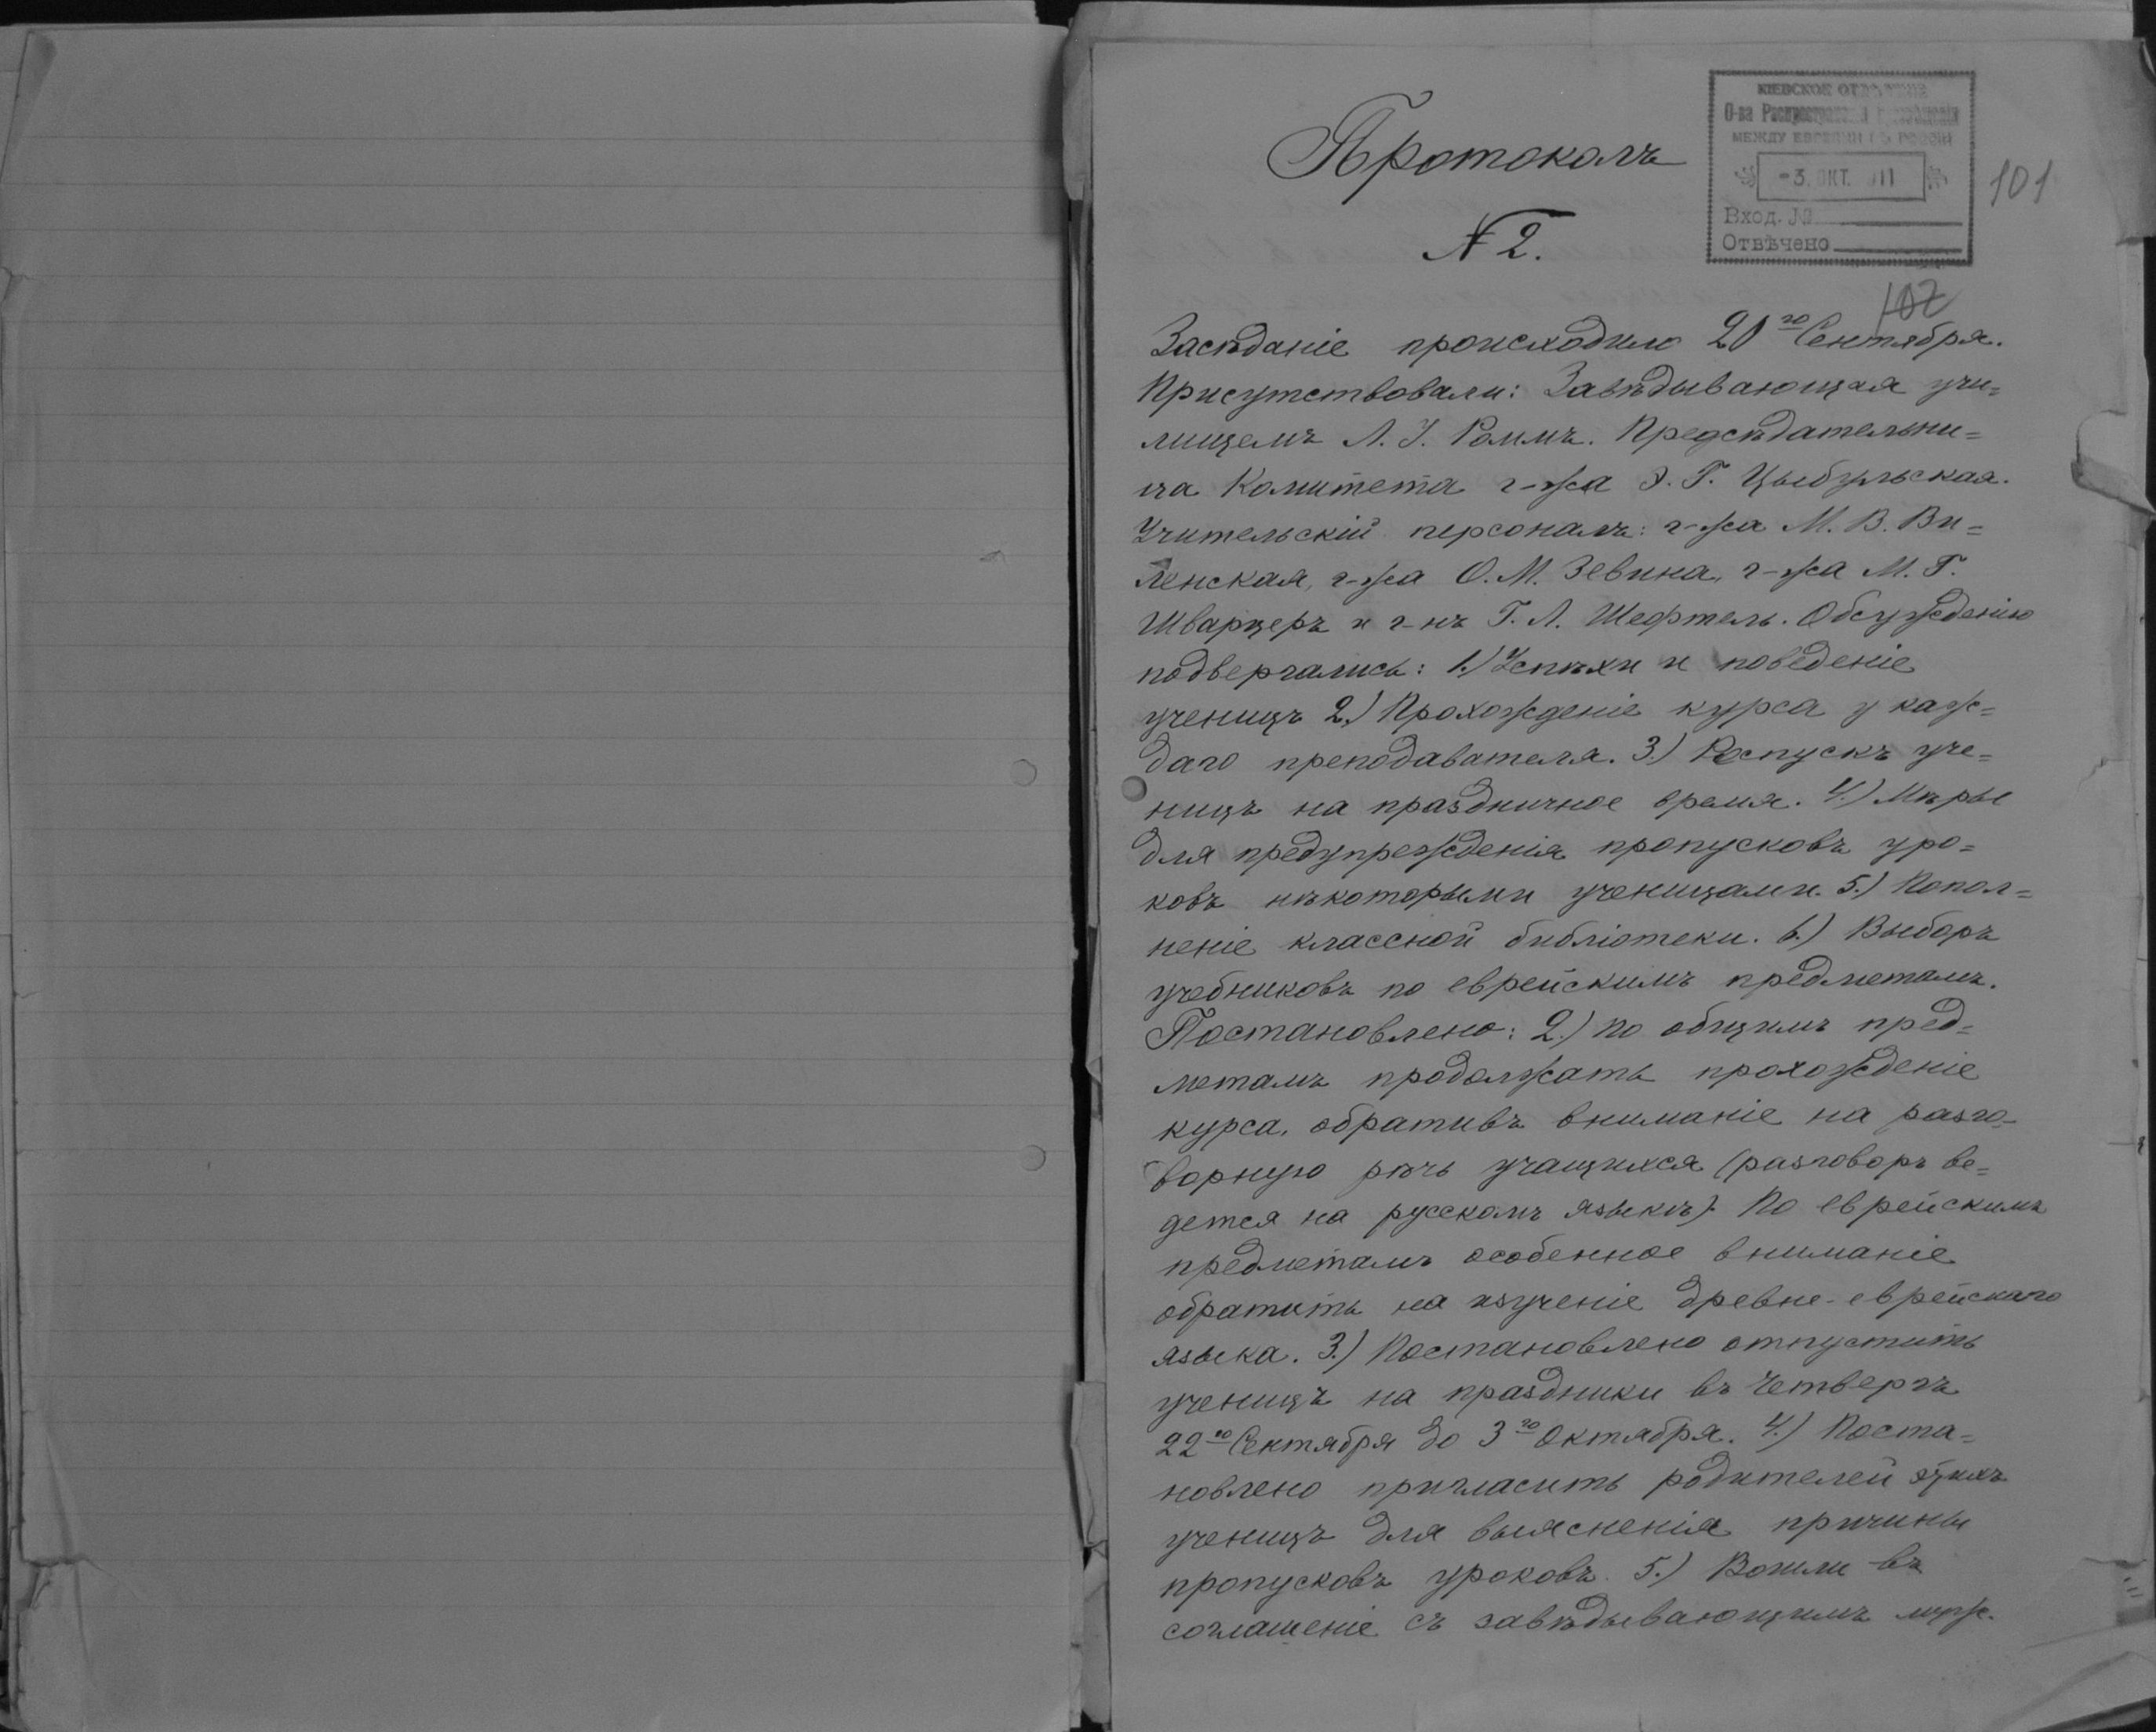 КІЕВСКОЕ ОТДѢЛЕНІЕ
О-ва Распространенія Просвѣщенія
МЕЖДУ ЕВРЕЯМИ ВЪ РОССІИ
-3. ОКТ. 911
Вход. №
Отвѣчено
101
Протоколъ
N 2.
102
Засѣданіе происходило 20го Сентября.
Присутствовали: Завѣдывающая учи=
лищемъ Л. І. Роммъ. Предсѣдательни=
ца Комитета г-жа Э. Г. Цыбульская.
Учительскій персоналъ: г-жа М. В. Ви=
ленская, г-жа О. М. Зевина, г-жа М. Г.
Шварцеръ и г-нъ Г. Л. Шефтель. Обсужденію
подвергались: 1.) Успѣхи и поведеніе
ученицъ 2.) Прохожденіе курса у каж=
даго преподавателя. 3.) Роспускъ уче=
ницъ на праздничное время. 4.) Мѣры
для предупрежденія пропусковъ уро=
ковъ нѣкоторыми ученицами. 5.) Попол=
неніе классной библіотеки. 6.) Выборъ
учебниковъ по еврейскимъ предметамъ.
Постановлено: 2.) по общимъ пред=
метамъ продолжать прохожденіе
курса, обративъ вниманіе на разго-
ворную рѣчь учащихся (разговоръ ве=
дется на русскомъ языкѣ). По еврейскимъ
предметамъ особенное вниманіе
обратить на изученіе древне-еврейскаго
языка. 3.) Постановлено отпустить
ученицъ на праздники въ Четвергъ
22го Сентября до 3го Октября. 4.) Поста=
новлено пригласить родителей этихъ
ученицъ для выясненія причины
пропусковъ уроковъ. 5.) Вошли въ
соглашеніе съ завѣдывающимъ муж.